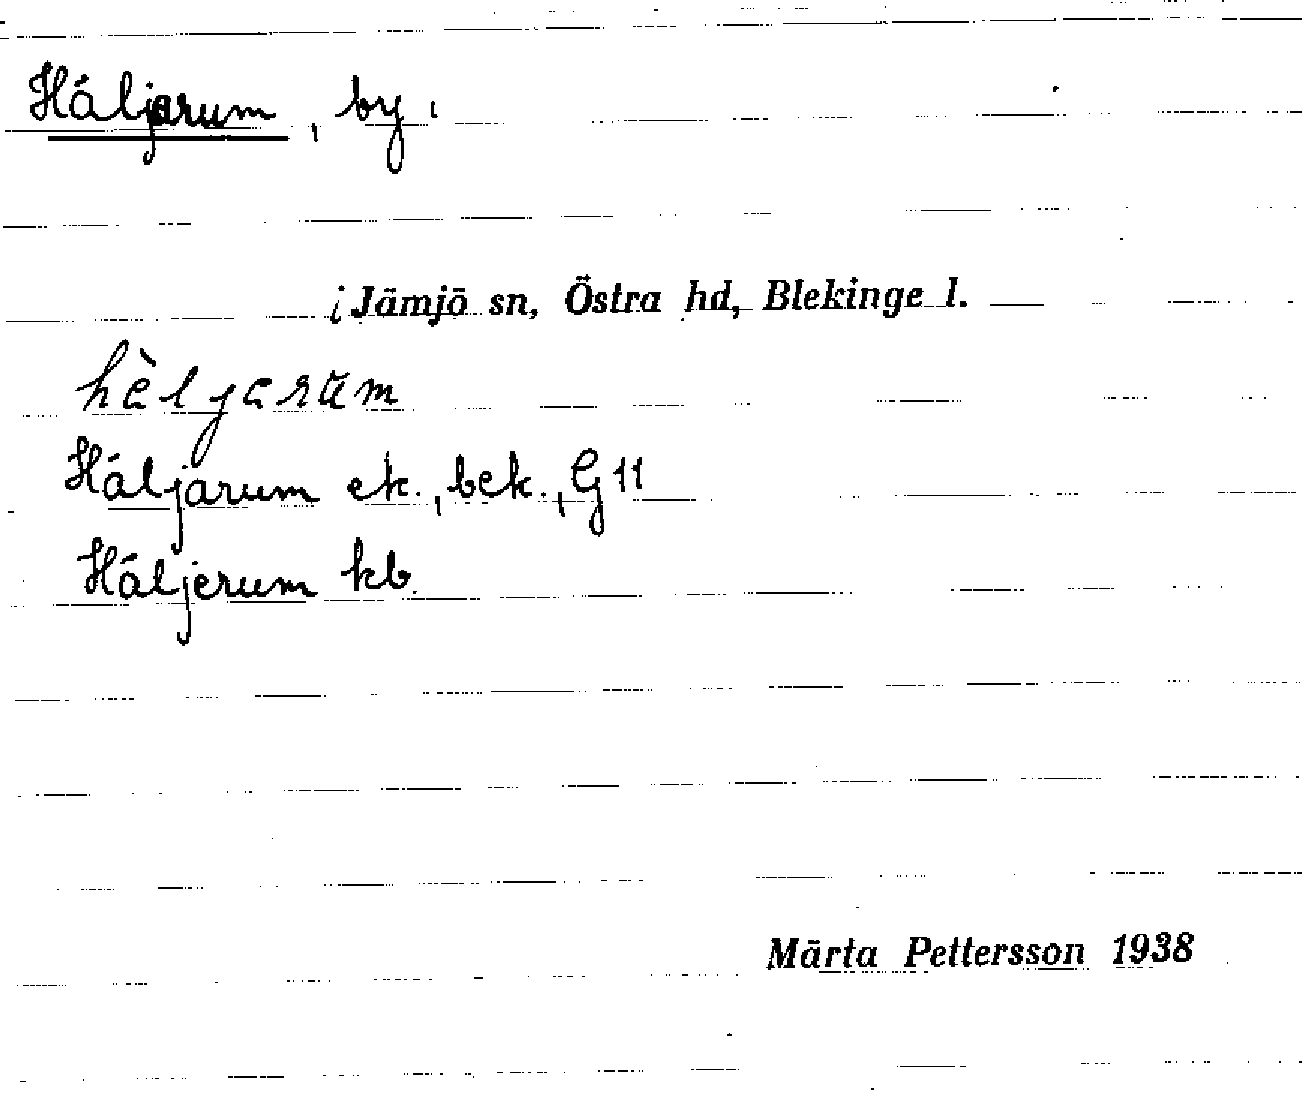 Häljarum, by i
i Jämjö sn, Östra hd, Blekinge l.
hèljarum
Häljarum ek., bek., G 11
Häljerum kb.
Märta Pettersson 1938